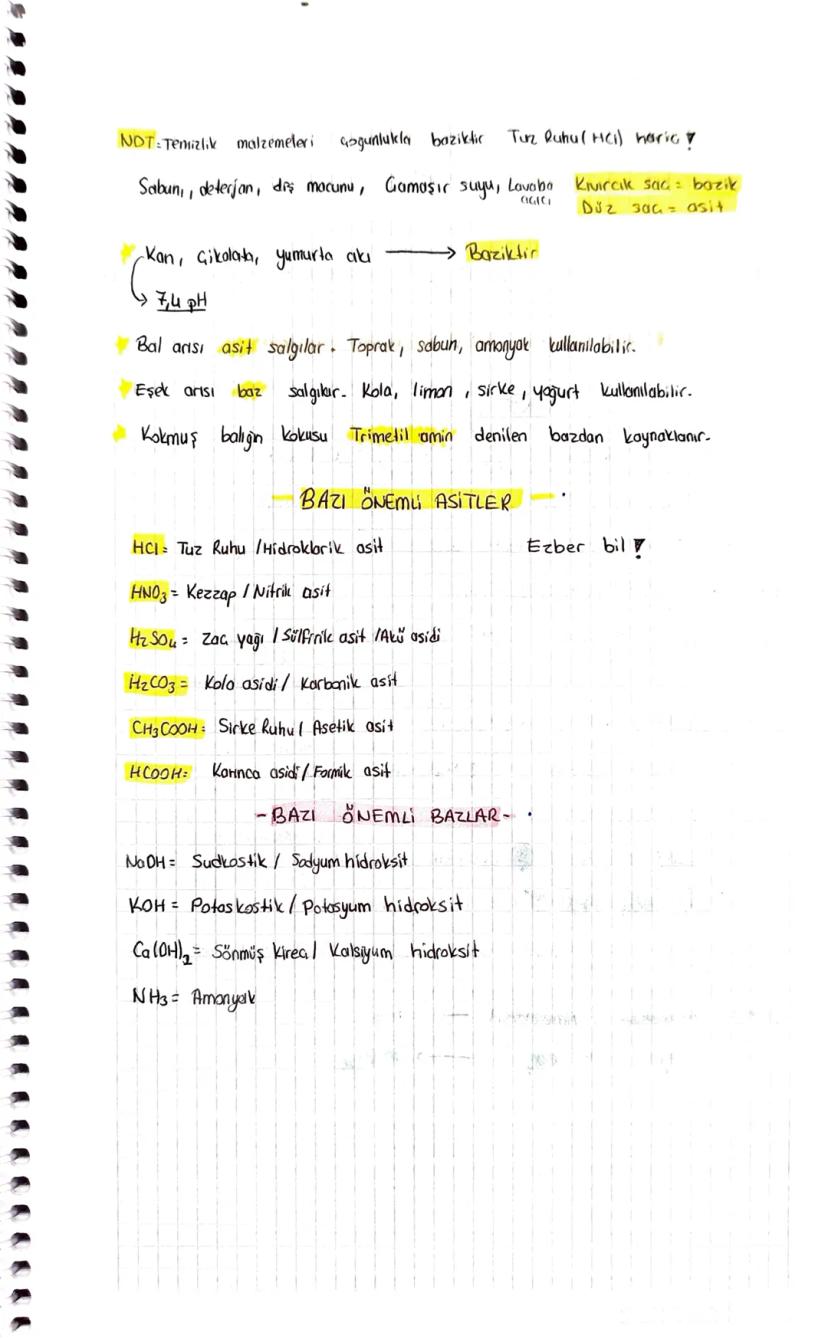 NOT: Temizlik malzemeleri çoğunlukla baziktir Tuz Ruhu (HCl) hariç !
Sabun, deterjan, diş macunu, Çamaşır suyu, Lavabo açıcı
Kıvırcık saç = bazik
Düz saç = asit
Kan, Çikolata, yumurta akı → Baziktir
↳ 7,4 pH
Bal arısı asit salgılar. Toprak, sabun, amonyak kullanılabilir.
Eşek arısı baz salgılar. Kola, limon, sirke, yoğurt kullanılabilir.
Kokmuş balığın kokusu Trimetil amin denilen bazdan kaynaklanır.
- BAZI ÖNEMLİ ASİTLER -
HCl = Tuz Ruhu / Hidroklorik asit Ezber bil !
HNO3 = Kezzap / Nitrik asit
H2SO4 = Zaç yağı / Sülfirik asit / Akü asidi
H2CO3 = Kola asidi / Karbonik asit
CH3COOH = Sirke Ruhu / Asetik asit
HCOOH = Karınca asidi / Formik asit
- BAZI ÖNEMLİ BAZLAR -
NaOH = Sudkostik / Sodyum hidroksit
KOH = Potaskostik / Potasyum hidroksit
Ca(OH)2 = Sönmüş kireç / Kalsiyum hidroksit
NH3 = Amonyak